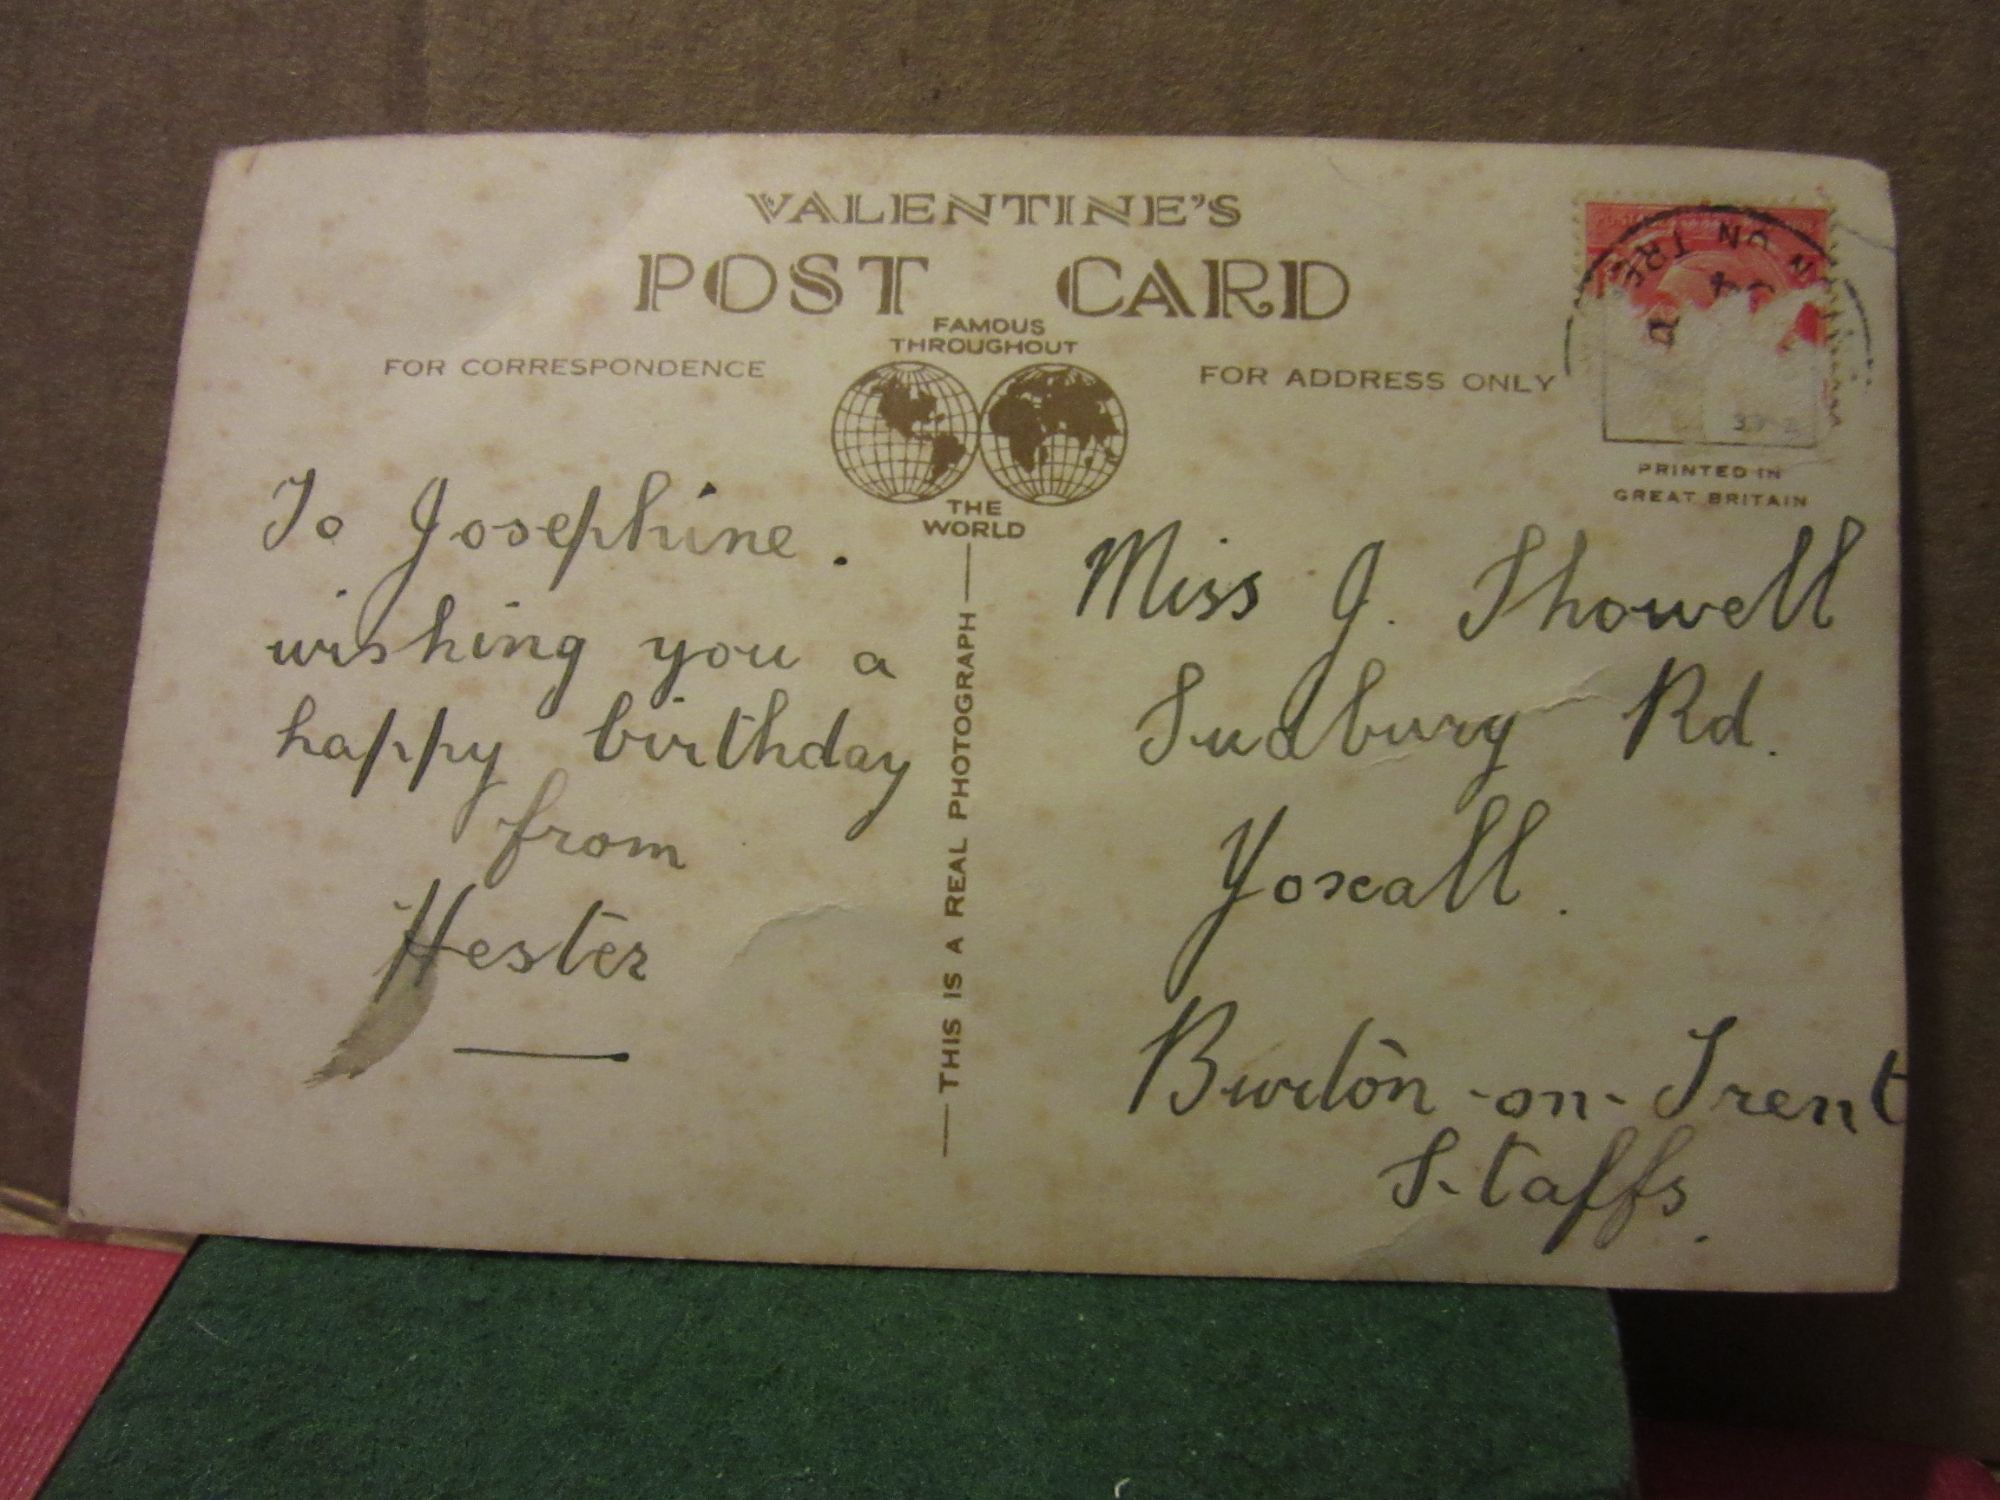 VALENTINE'S
POST CARD
FAMOUS
THROUGHOUT
THE
WORLD
FOR CORRESPONDENCE
FOR ADDRESS ONLY
PRINTED IN
GREAT BRITAIN
THIS IS A REAL PHOTOGRAPH
To Josephine.
wishing you a
happy birthday
from
Hester
Miss J. Showell
Sudbury Rd.
Yoxall.
Burton-on-Trent
Staffs.